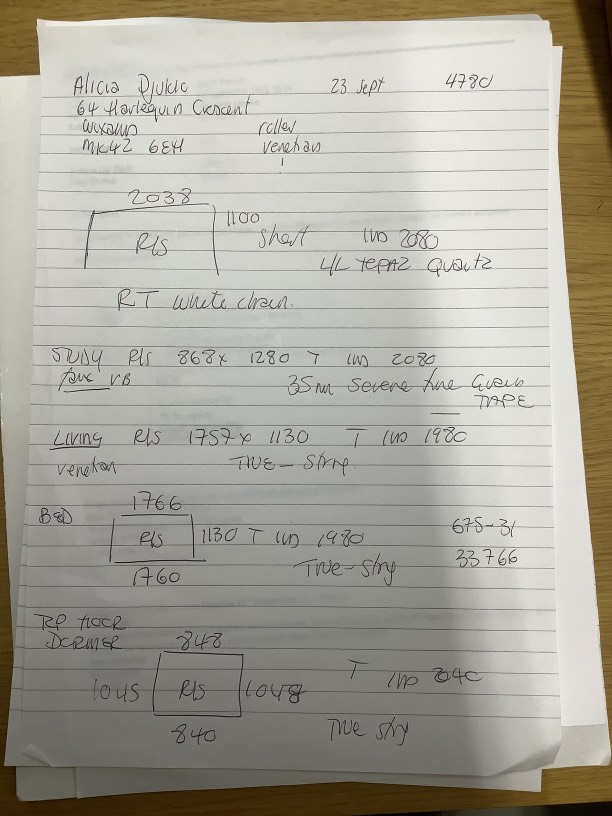 Alicia Djukic 23 Sept 4780
64 Harlequin Crescent
roller
MK42 6EH venetian
2038
1100
R/S Short IWD 2080
L/L TOPAZ Quartz
RT White chain.
STUDY R/S 868 x 1280 T IWD 2080
faux VB 35mm Severe fine Grain
TAPE
Living R/S 1757 x 1130 T IWD 1980
venetian TRUE - String
1766
BED R/S 1130 T IWD 1980 675-31
True - String 33766
1760
TOP FLOOR
DORMER 848
1045 R/S T IWD
840 True String